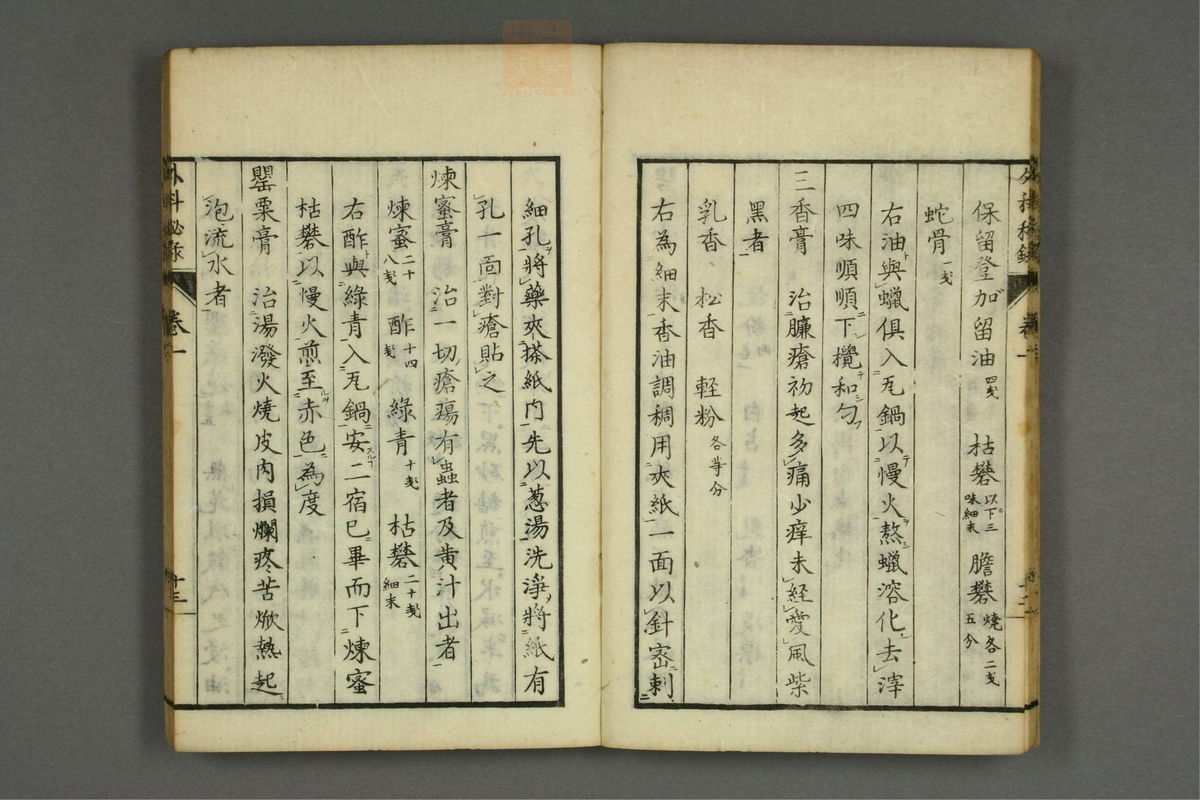 保留登加留油四戔 枯礬以下三味細末 膽礬燒各二戔五分
蛇骨一戔
右油與蠟俱入瓦鍋以慢火熬蠟溶化去滓
四味順順下攪和匀
三香膏 治臁瘡初起多痛少痒未經愛風紫
黑者
乳香 松香 軽粉各等分
右為細末香油調稠用夾紙一面以針密刺
細孔將藥夾搽紙内先以葱湯洗淨將紙有
孔一面對瘡貼之
煉蜜膏 治一切瘡瘍有蟲者及黄汁出者
煉蜜二十八戔 酢十四戔 綠青十戔 枯礬二十戔細末
右酢與綠青入瓦鍋安二宿已畢而下煉蜜
枯礬以慢火煎至赤色為度
罌粟膏 治湯潑火燒皮肉損爛疼苦焮熱起
泡流水者
外科秘録 卷一 十二
外科祕录 卷一 十三